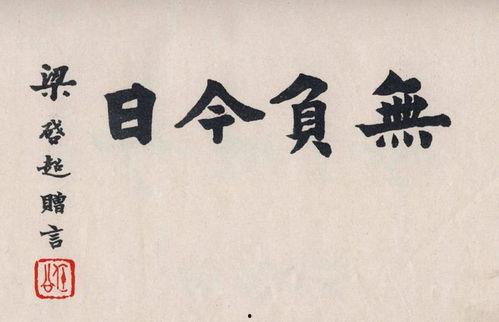 無負今日
梁啓超贈言
任公